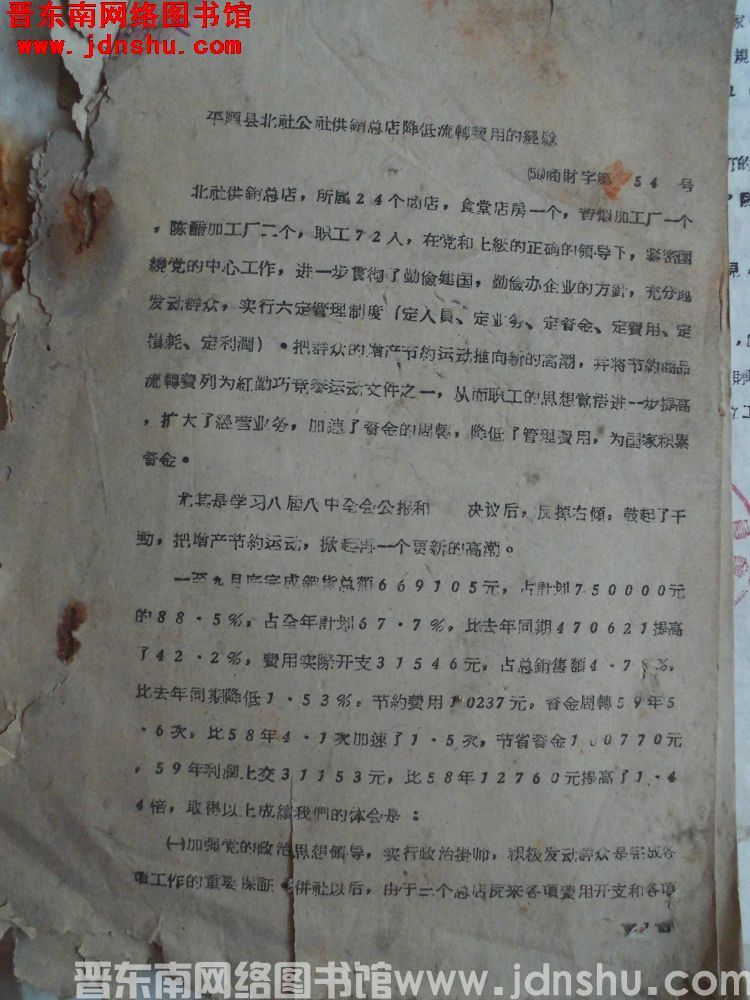 晋东南网络图书馆
www.jdnshu.com
平順县北社公社供銷总店降低流轉費用的經驗
(59)商財字第 54 号
北社供銷总店，所屬24个商店，食堂店房一个，香烟加工厂一个
，陈醋加工厂二个，职工72人，在党和上級的正确的領导下，紧密圍
繞党的中心工作，进一步貫彻了勤儉建国，勤儉办企业的方針，充分地
发动群众，实行六定管理制度（定人員、定业务、定資金、定費用、定
損耗、定利潤）。把群众的增产节約运动推向新的高潮，并将节約商品
流轉費列为紅勤巧竞赛运动文件之一，从而职工的思想覚悟进一步提高
，扩大了經营业务，加速了資金的周轉，降低了管理費用，为国家积累
資金。
尤其是学习八届八中全会公报和 决议后，反掉右傾，鼓起了干
勁，把增产节約运动，掀起再一个更新的高潮。
一至九月底完成銷货总額669105元，占計划750000元
的88·5%，占全年計划67·7%，比去年同期470621提高
了42·2%，費用实際开支31546元，占总銷售額4·7%，
比去年同期降低1·53%，节約費用10237元，資金周轉59年5
·6次，比58年4·1次加速了1·5次，节省資金1 0770元
，59年利潤上交31153元，比58年12760元提高了1·4
4倍，取得以上成績我們的体会是：
㈠加强党的政治思想領导，实行政治掛帅，积极发动群众是完成各
項工作的重要保証。併社以后，由于三个总店反来各項費用开支和各項
晋东南网络图书馆www.jdnshu.com